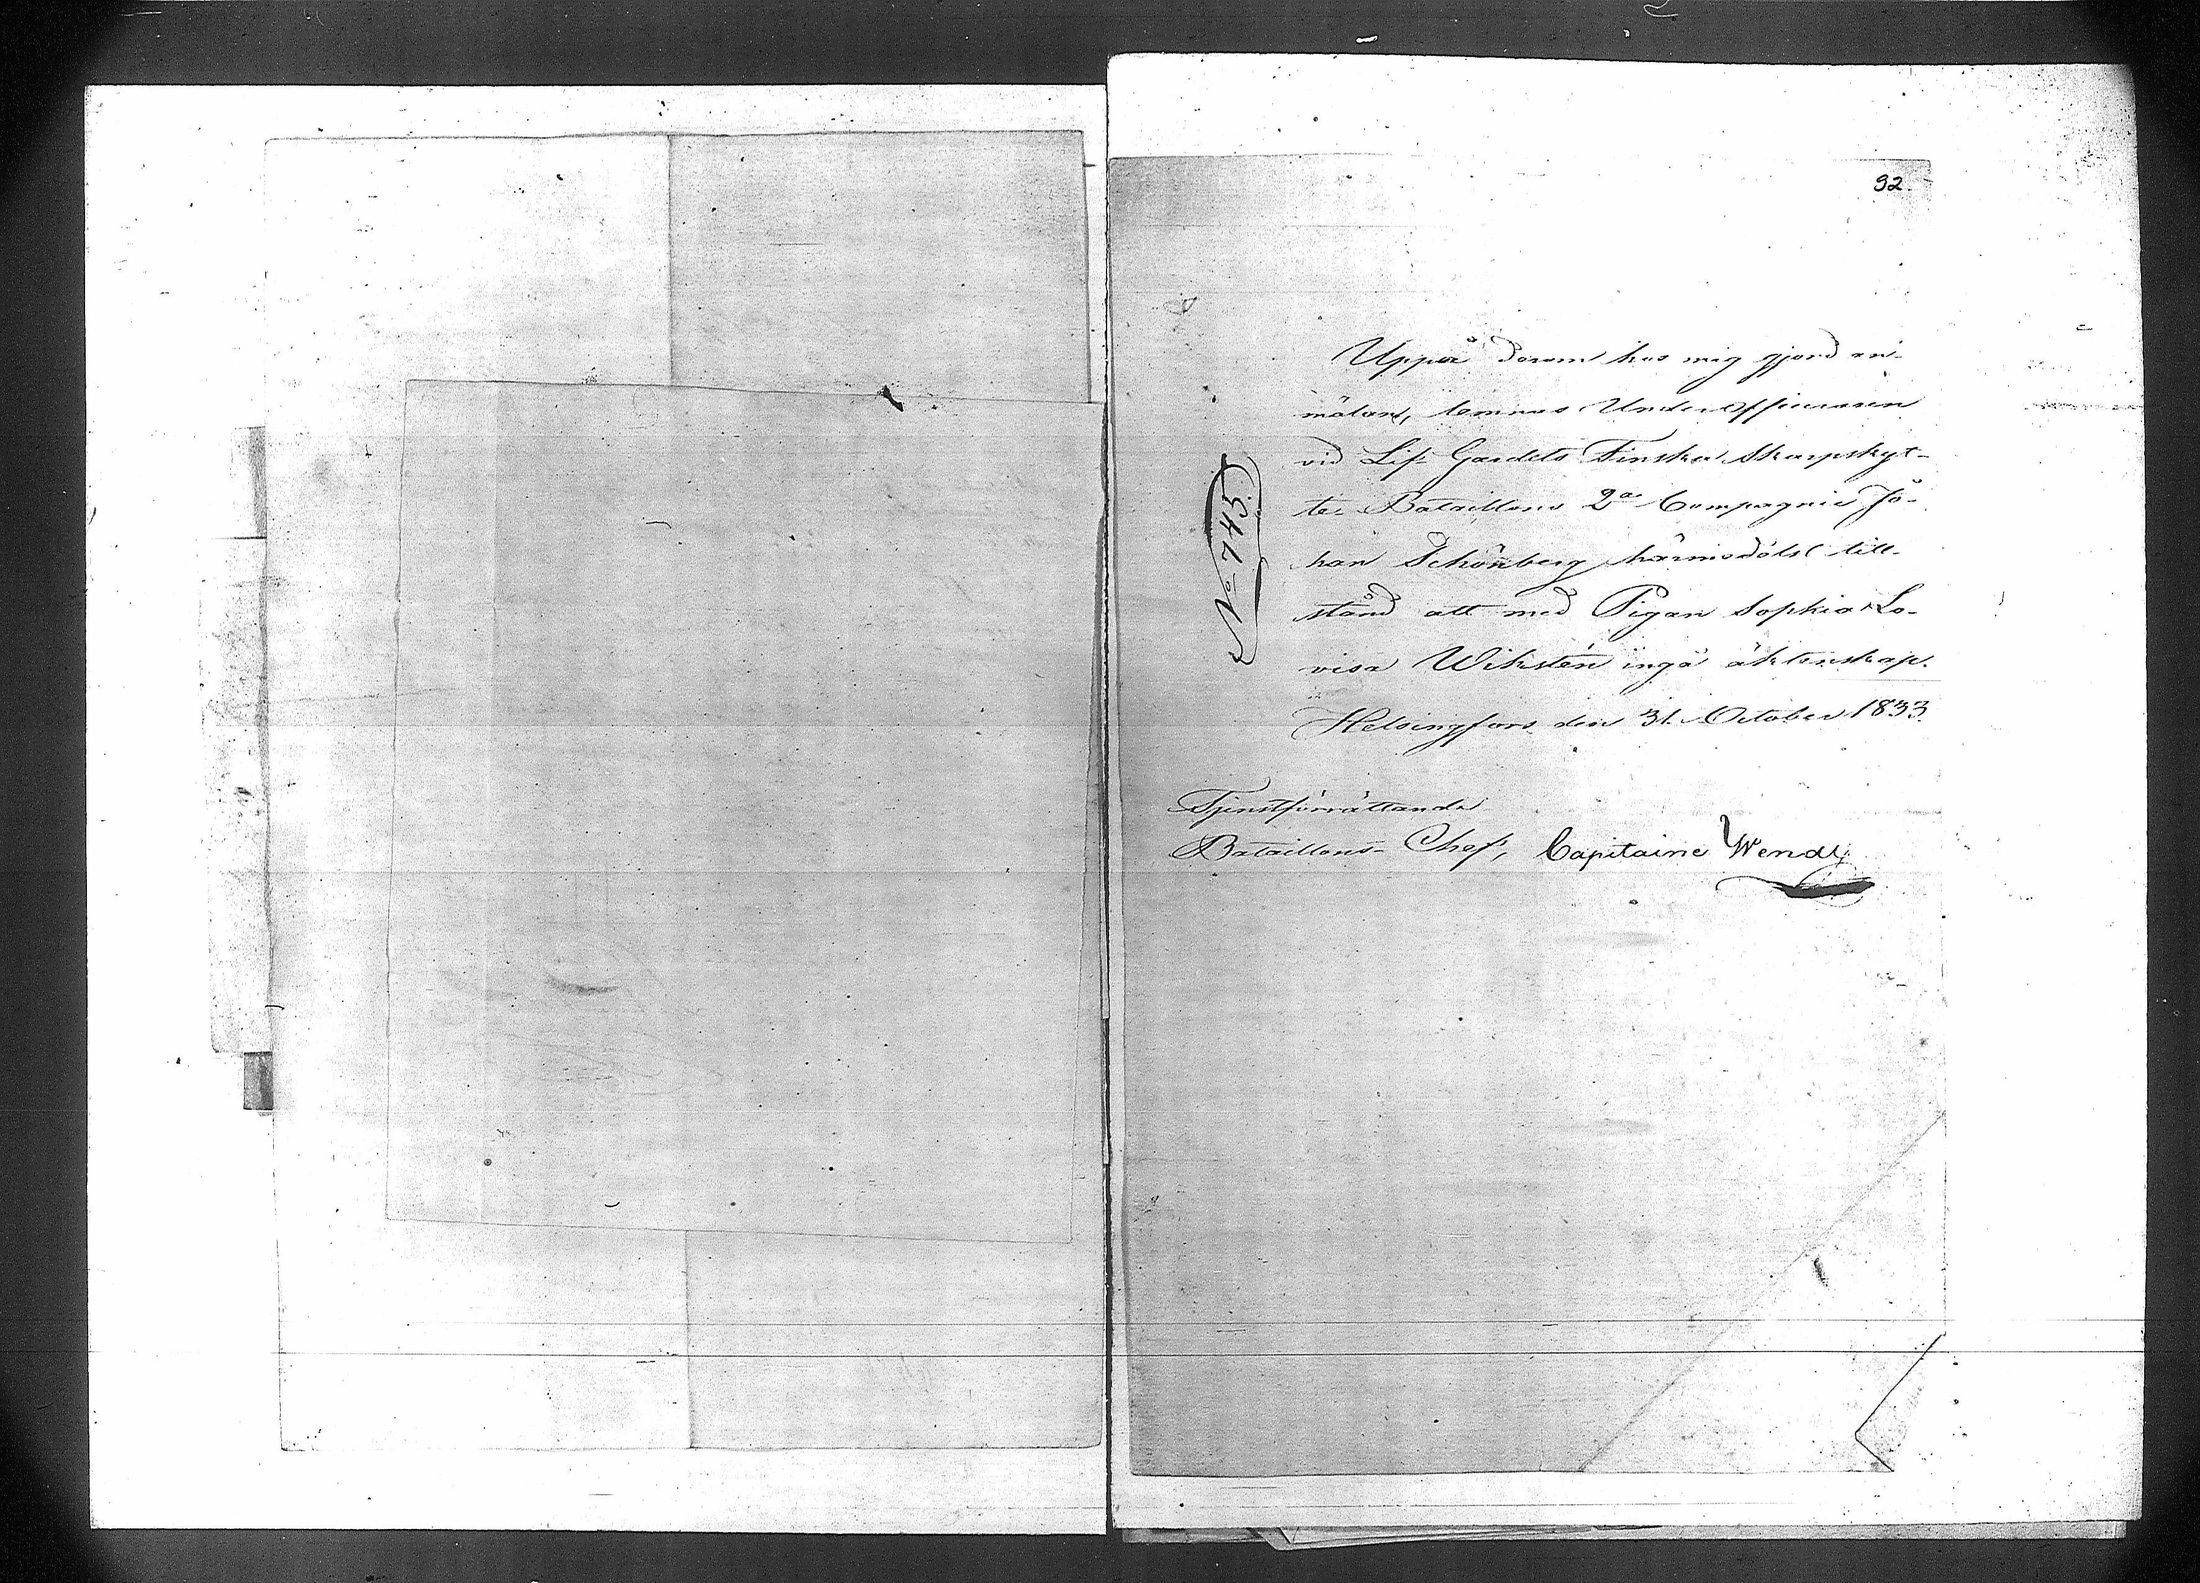 92.
Uppå derom hos mig gjord an-
mälan, lemnas Underofficeraren
vid Lif-Gardets Finska Skarpskyt-
te-Bataillons 2a Compagnie Jo-
han Schönberg härmedelst till-
stånd att med Pigan Sophia Lo-
visa Wikstén ingå äktenskap.
Helsingfors den 31. October 1833.
No 745.
Tjenstförrättande
Bataillons-Chef, Capitaine Wendt